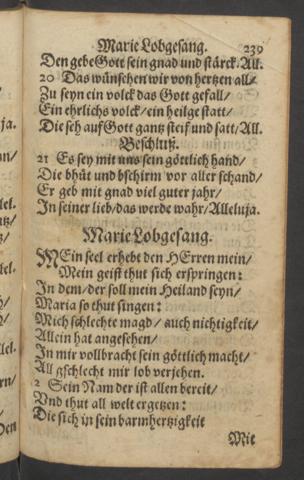 Marie Lobgesang. 239
Den gebe Gott sein gnad und stärck. All.
20 Das wünschen wir von hertzen all/
Zu seyn ein volck das Gott gefall/
Ein ehrlichs volck/ ein heilge statt/
Die seh auf Gott gantz steif und satt/ All.
Beschlutz.
21 Es sey mit uns sein göttlich hand/
Die bhüt und bschirm vor aller schand/
Er geb mit gnad viel guter jahr/
In seiner lieb/ das werde wahr/ Alleluja.
Marie Lobgesang.
MEin seel erhebt den HErren mein/
Mein geist thut sich erspringen:
In dem/ der soll mein Heiland seyn/
Maria so thut singen:
Mich schlechte magd/ auch nichtigkeit/
Allein hat angesehen/
In mir vollbracht sein göttlich macht/
All gschlecht mir lob verjehen.
2 Sein Nam der ist allen bereit/
Vnd thut all welt ergetzen:
Die sich in sein barmhertzigkeit
Mit